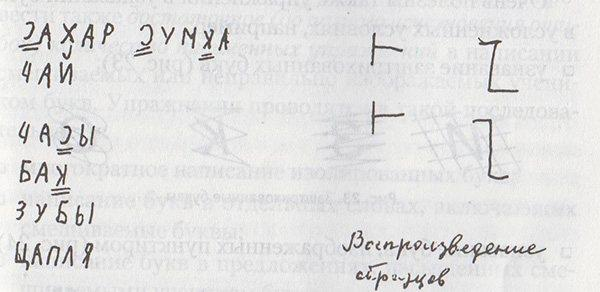 САХАР СУМКА
ЧАЙ
ЧАСЫ
БАК
ЗУБЫ
ЦАПЛЯ
Воспроизведение
образцов